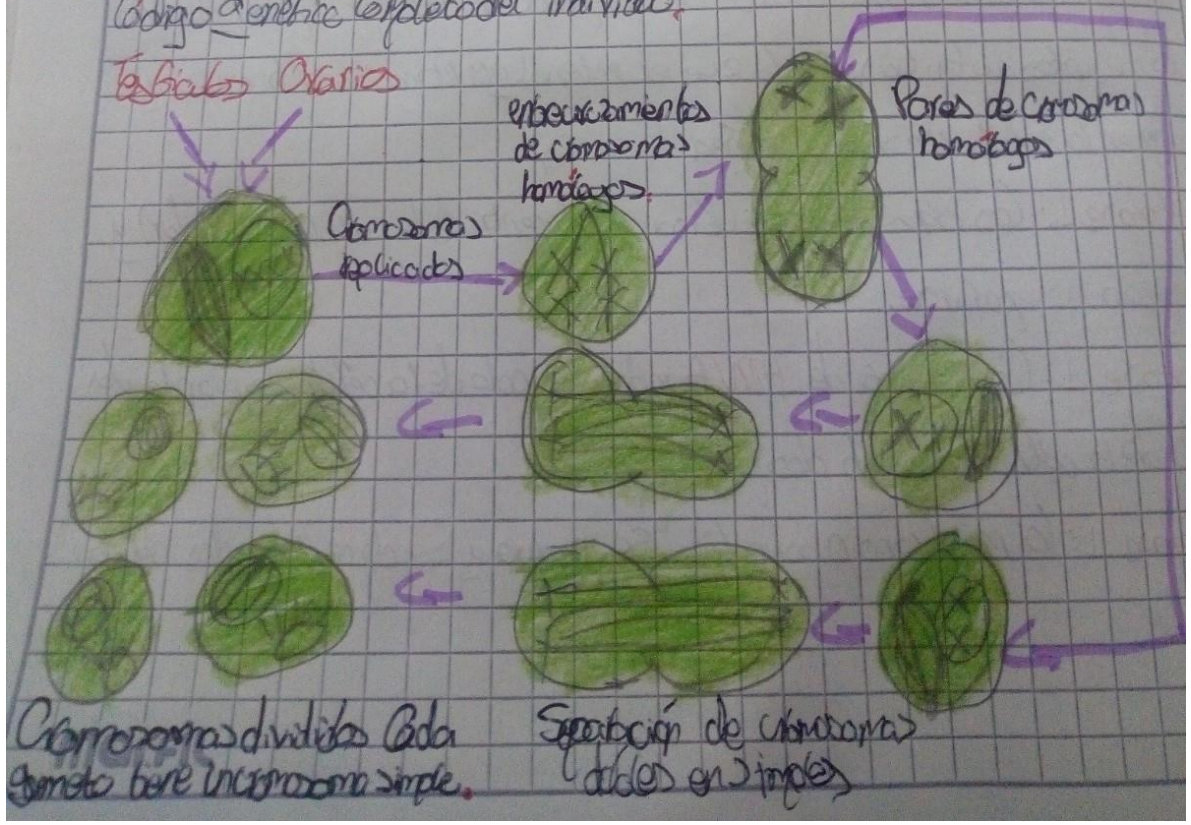 Código genético completo del individuo.
Testículos Ovarios
de cromosomas
homólogos.
Pares de cromosomas
homólogos
Cromosomas
replicados
Cromosomas divididos Cada
gameto tiene un cromosoma simple.
Separación de cromosomas
dobles en simples